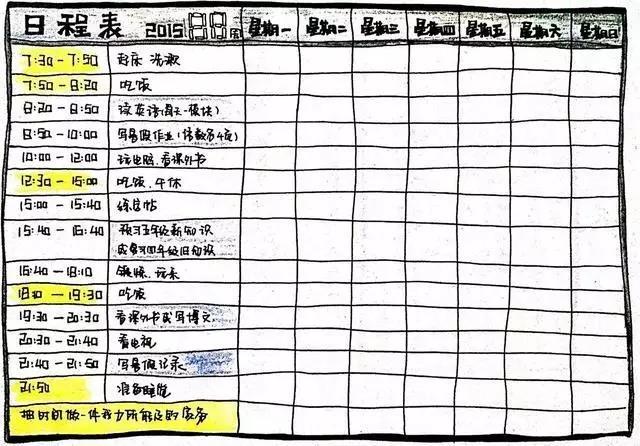 日程表 2015 88周 星期一 星期二 星期三 星期四 星期五 星期六 星期日
7:30-7:50 起床 洗漱
7:50-8:20 吃饭
8:20-8:50 读英语(两天一模块)
8:50-10:00 写暑假作业(语数各4页)
10:00-12:00 玩电脑、看课外书
12:30-15:00 吃饭、午休
15:00-15:40 练字帖
15:40-16:40 预习五年级新知识
或复习四年级旧知识
16:40-18:10 锻炼、玩耍
18:10-19:30 吃饭
19:30-20:30 看课外书或写博文
20:30-21:40 看电视
21:40-21:50 写暑假记录
21:50 准备睡觉
抽时间做一件我力所能及的家务